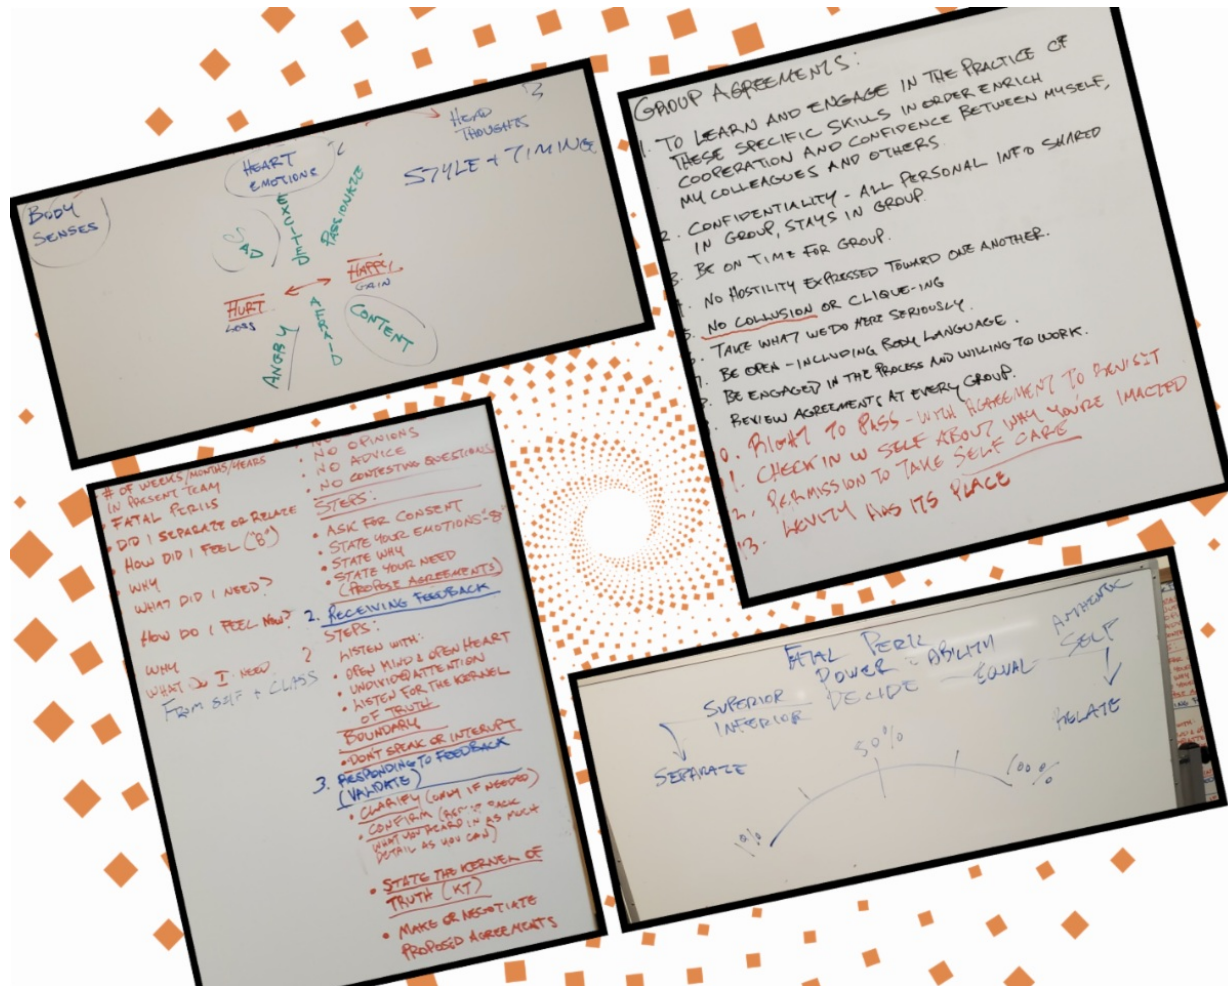 3
HEAD
THOUGHTS
HEART
EMOTIONS
STYLE + TIMING
BODY
SENSES
SAD
EXCITED
PASSIONATE
HURT
LOSS
HAPPY
GAIN
ANGRY
AFRAID
CONTENT
GROUP AGREEMENTS:
1. TO LEARN AND ENGAGE IN THE PRACTICE OF
THESE SPECIFIC SKILLS IN ORDER ENRICH
COOPERATION AND CONFIDENCE BETWEEN MYSELF,
MY COLLEAGUES AND OTHERS.
2. CONFIDENTIALITY - ALL PERSONAL INFO SHARED
IN GROUP, STAYS IN GROUP.
3. BE ON TIME FOR GROUP.
NO HOSTILITY EXPRESSED TOWARD ONE ANOTHER.
NO COLLUSION OR CLIQUE-ING
TAKE WHAT WE DO HERE SERIOUSLY.
BE OPEN - INCLUDING BODY LANGUAGE.
BE ENGAGED IN THE PROCESS AND WILLING TO WORK.
REVIEW AGREEMENTS AT EVERY GROUP.
0. RIGHT TO PASS - WITH AGREEMENT TO REVISIT
1. CHECK IN W SELF ABOUT WHY YOU'RE IMACTED
2. PERMISSION TO TAKE SELF CARE
13. LEVITY HAS ITS PLACE
# OF WEEKS/MONTHS/YEARS
IN PRESENT TEAM
• FATAL PERILS
• DID I SEPARATE OR RELATE
• HOW DID I FEEL ("8")
• WHY
WHAT DID I NEED?
HOW DO I FEEL NOW?
WHY
WHAT DO I NEED ?
FROM SELF + CLASS
• NO OPINIONS
• NO ADVICE
• NO CONTESTING QUESTIONS
STEPS:
• ASK FOR CONSENT
• STATE YOUR EMOTIONS "8"
• STATE WHY
• STATE YOUR NEED
(PROPOSE AGREEMENTS)
2. RECEIVING FEEDBACK
STEPS:
LISTEN WITH:
• OPEN MIND & OPEN HEART
• UNDIVIDED ATTENTION
• LISTEN FOR THE KERNEL
OF TRUTH
BOUNDARY
• DON'T SPEAK OR INTERUPT
3. RESPONDING TO FEEDBACK
(VALIDATE)
• CLARIFY (ONLY IF NEEDED)
• CONFIRM ( BACK
WHAT YOU HEARD IN AS MUCH
DETAIL AS YOU CAN)
• STATE THE KERNEL OF
TRUTH (KT)
• MAKE OR NEGOTIATE
PROPOSED AGREEMENTS
FATAL PERIL
POWER = ABILITY
AUTHENTIC
SELF
SUPERIOR
INFERIOR
DECIDE - EQUAL
SEPARATE
RELATE
50%
100%